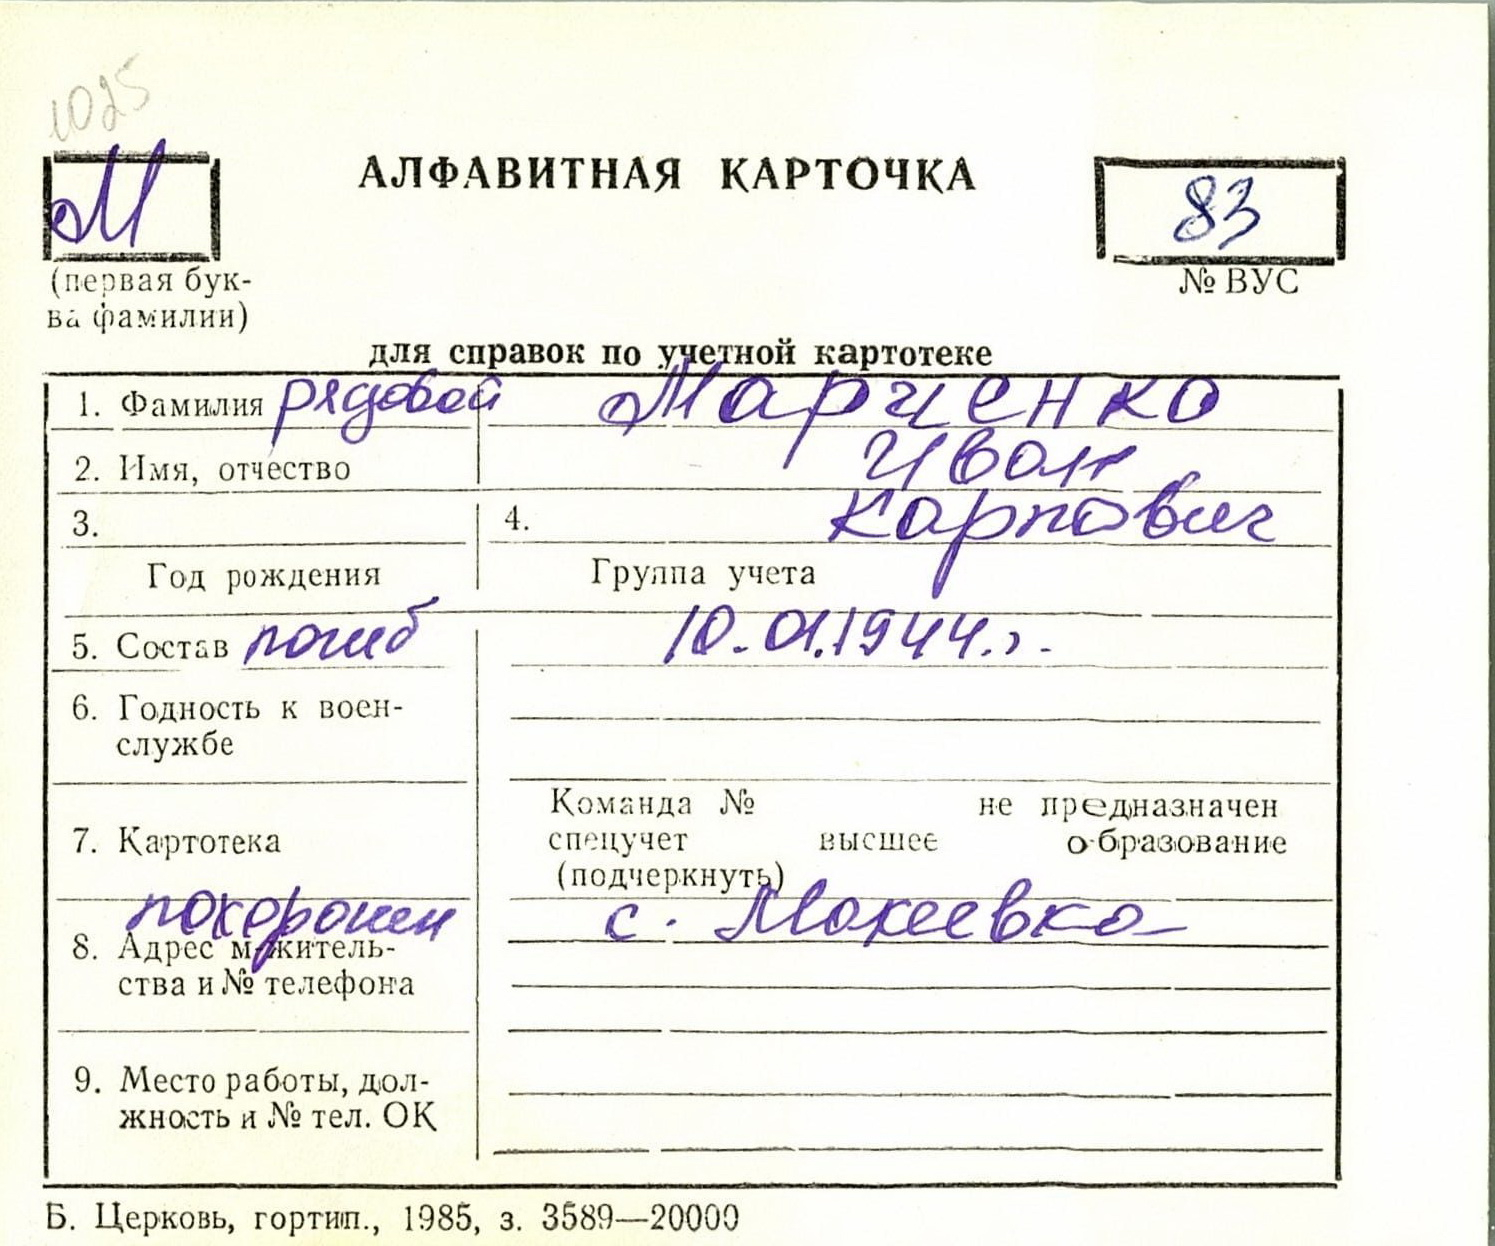 1025
М
АЛФАВИТНАЯ КАРТОЧКА
83
(первая бук-
ва фамилии)
№ ВУС
для справок по учетной картотеке
1. Фамилия рядовой Марченко
2. Имя, отчество Иван
3. 4. Карпович
Год рождения Группа учета
5. Состав погиб 10.01.1944 г.
6. Годность к воен-
службе
Команда № не предназначен
7. Картотека спецучет высшее образование
(подчеркнуть)
похоронен с. Макеевка
8. Адрес м/житель-
ства и № телефона
9. Место работы, дол-
жность и № тел. ОК
Б. Церковь, гортип., 1985, з. 3589—20000